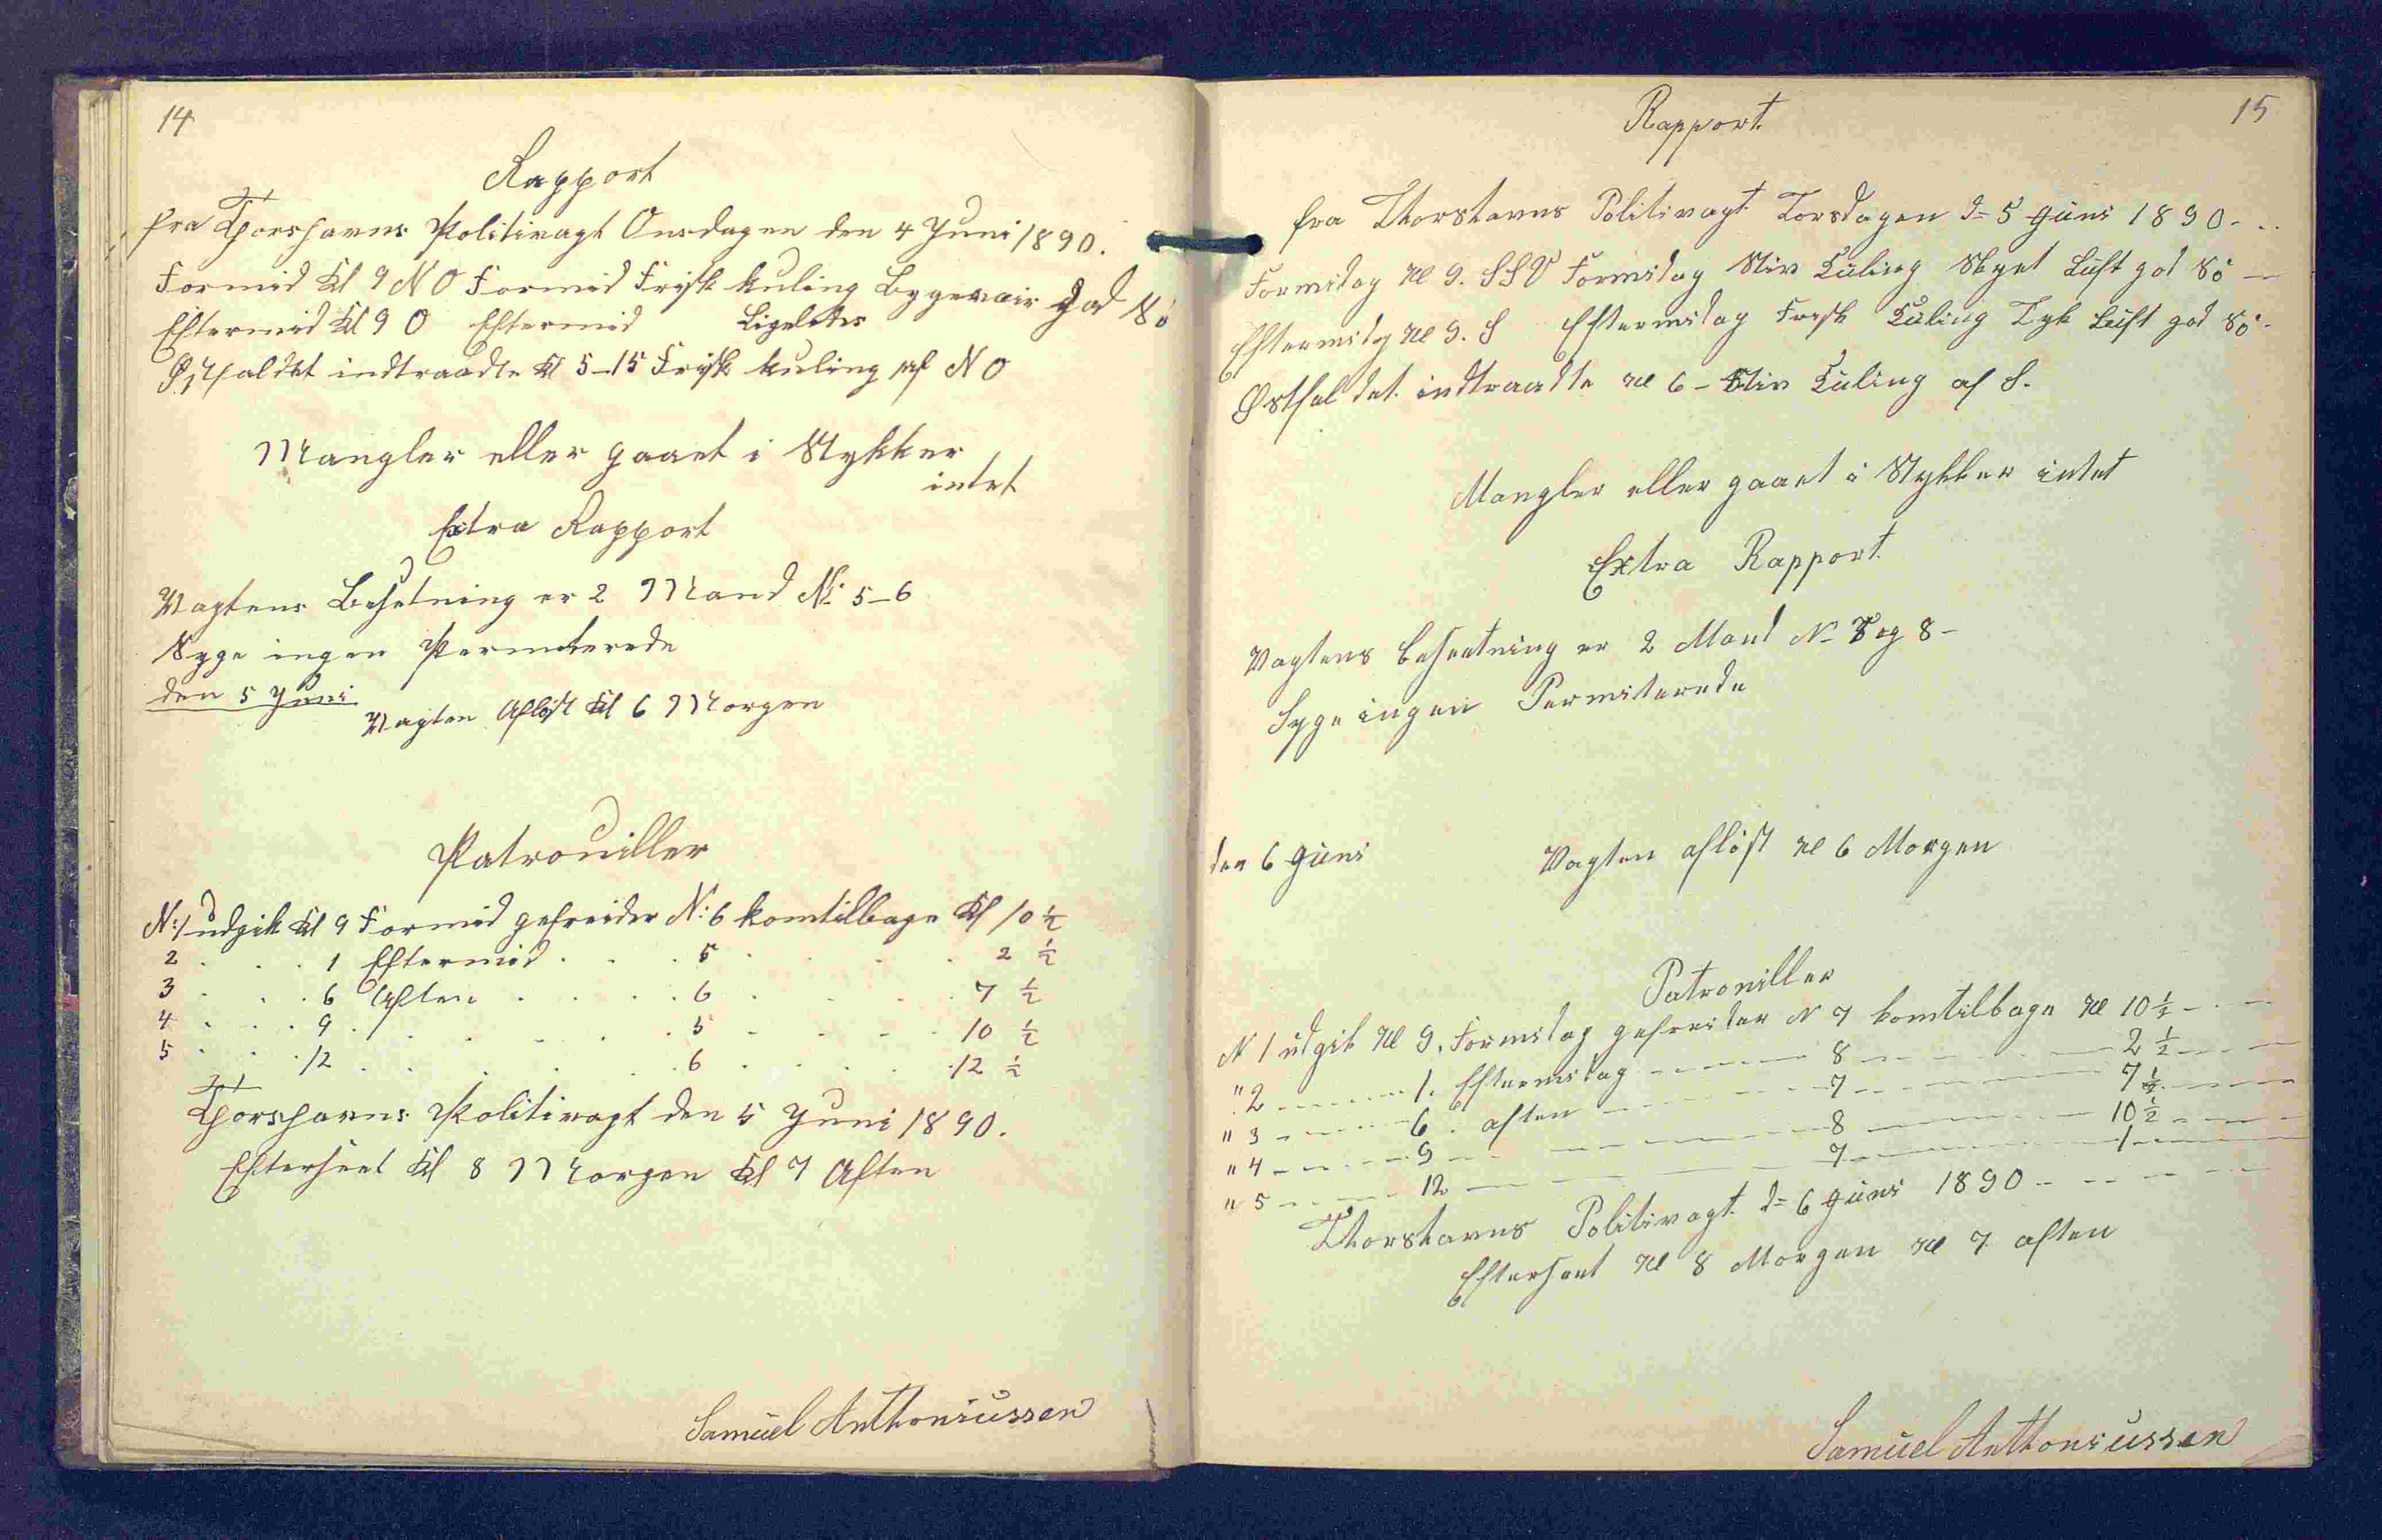 14
Rapport
fra Thorshavns Politivagt Onsdagen den 4 Juni 1890.
Formid Kl 9 NO Formid Frisk kuling Bygevair god Sö
Eftermid Kl 9 O Eftermid Ligeledes
Østfaldet indtraadte Kl 5-15 Frisk kuling af NO
Mangler eller gaaet i Stykker
intet
Extra Rapport
Vagtens Besetning er 2 Mand No 5-6
Syge ingen Permeterede
den 5 Juni
Vagten Afløst Kl 6 Morgen
Patrouiller
N:1 udgik Kl 9 Formid gefreider N:6 komtilbage Kl 10 ½
2 . . . 1 Eftermid . . . 5 . . . . 2 ½
3 . . . 6 Aften . . . . 6 . . . 7 ½
4 . . . 9 . . . . . 5 . . . . 10 ½
5 . . . 12 . . . . . 6 . . . . 12 ½
Thorshavns Politivagt den 5 Juni 1890.
Efterseet Kl 8 Morgen Kl 7 Aften
Samuel Anthoniussen
15
Rapport.
fra Thorshavns Politivagt Torsdagen d= 5 Juni 1890-..
Formidag Kl 9. SSV Formidag Stiv Kuling Skyet Luft god Sö —
Eftermidag Kl 9. S Eftermidag Frisk Kuling Tyk Luft god Sö.
Østfaldet indtraadte Kl 6 - Stiv Kuling af S.
Mangler eller gaaet i Stykker intet
Extra Rapport
Vagtens besætning er 2 Mand No 7 og 8 -
Syge ingen Permiterede
den 6 Juni
Vagten afløst Kl 6 Morgen
Patrouiller
N 1 udgik Kl 9. Formidag gefreider N 7 komtilbage Kl 10 ½ - - —
" 2 - - - - - 1. Eftermidag - - - - - 8 - - - - - 2 ½ - - —
" 3 - - - - - 6. aften - - - - - 7 - - - - - 7 ½ - - -
" 4 - - - - - 9 - - - - - 8 - - - - - 10 ½ - - -
" 5 - - - - - 12 - - - - - 7 - - - - - 1 - - -
Thorshavns Politivagt d= 6 Juni 1890 - - - -
Efterseet Kl 8 Morgen Kl 7 aften
Samuel Anthoniussen